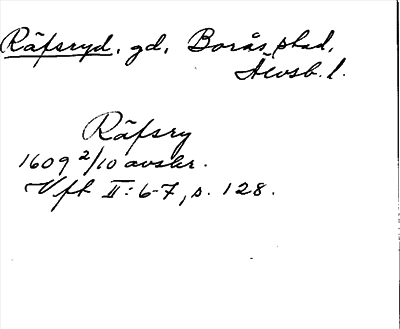 Räfsryd, gd, Borås stad,
Älvsb. l.
Räfsry
1609 2/10 avskr.
Vft II: 6-7, s. 128.